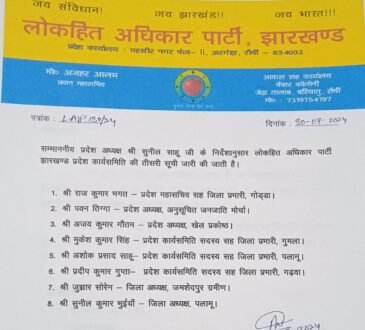 जय संविधान! जय झारखण्ड!! जय भारत!!!
लोकहित अधिकार पार्टी, झारखण्ड
प्रदेश कार्यालय : महावीर नगर फेज– II, अरगोड़ा, राँची – 834002
मो० अजहर आलम
प्रधान महासचिव
आवास सह कार्यालय
पंचवट कॉलोनी
जेड़ा तालाब, बरियातु, राँची
मो० : 7319754197
पत्रांक : LAP 150/24
दिनांक : 30-07-2024
सम्माननीय प्रदेश अध्यक्ष श्री सुनील साहू जी के निर्देशानुसार लोकहित अधिकार पार्टी
झारखण्ड प्रदेश कार्यसमिति की तीसरी सूची जारी की जाती है।
1. श्री राज कुमार भगत – प्रदेश महासचिव सह जिला प्रभारी, गोड्डा।
2. श्री पवन तिग्गा – प्रदेश अध्यक्ष, अनुसूचित जनजाति मोर्चा।
3. श्री अजय कुमार गौतम – प्रदेश अध्यक्ष, खेल प्रकोष्ठ।
4. श्री मुकेश कुमार सिंह – प्रदेश कार्यसमिति सदस्य सह जिला प्रभारी, गुमला।
5. श्री अशोक प्रसाद साहू– प्रदेश कार्यसमिति सदस्य सह जिला प्रभारी, पलामू।
6. श्री प्रदीप कुमार गुप्ता– प्रदेश कार्यसमिति सदस्य सह जिला प्रभारी, गढ़वा।
7. श्री जुझार सोरेन – जिला अध्यक्ष, जमशेदपुर ग्रामीण।
8. श्री सुनील कुमार भुईयाँ – जिला अध्यक्ष, पलामू।